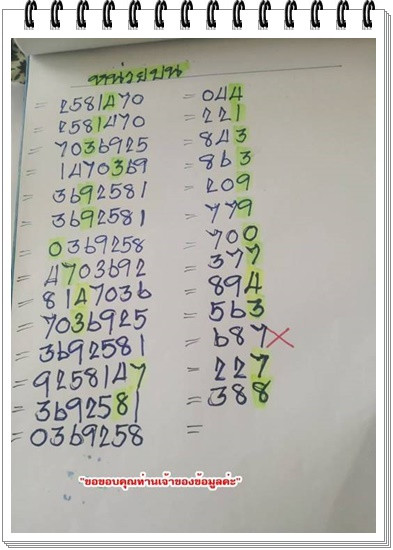 หน่วยบน
= 2581470 = 044
= 2581470 = 221
= 7036925 = 843
= 1470369 = 863
= 3692581 = 209
= 3692581 = 779
= 0369258 = 700
= 4703692 = 377
= 8147036 = 894
= 7036925 = 563
= 3692581 = 687 ×
= 9258147 = 227
= 3692581 = 388
= 0369258 =
"ขอขอบคุณท่านเจ้าของข้อมูลค่ะ"